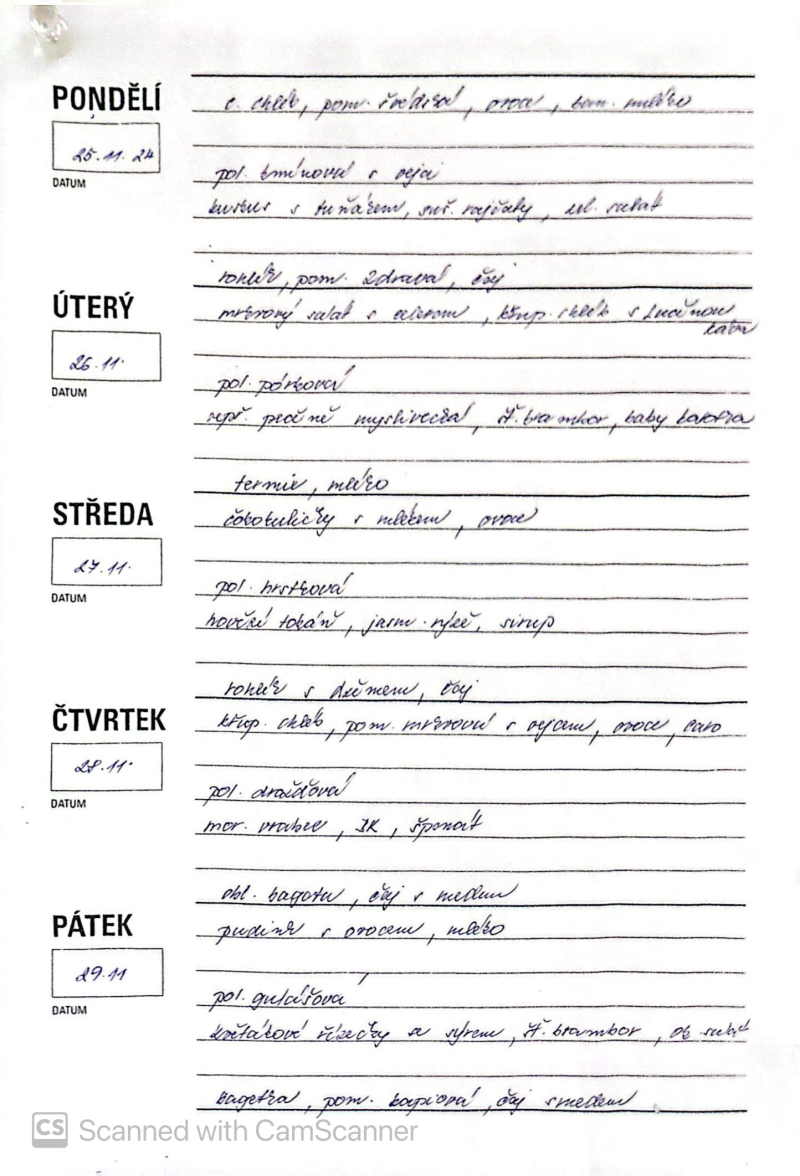 PONDĚLÍ
25.11.24
DATUM
c. chléb, pom. švédská, ovoce, ban. mléko
pol. kmínová s vejci
kuskus s tuňákem, suš. rajčaty, zel. salát
rohlík, pom. zdravá, čaj
ÚTERÝ
26.11.
DATUM
mrkvový salát s celerem, křup. chléb s Lučinou
káva
pol. pórková
vepř. pečeně myslivecká, šť. brambor, baby karotka
termix, mléko
STŘEDA
27.11.
DATUM
čokokuličky s mlékem, ovoce
pol. hrstková
hovězí tokáň, jasm. rýže, sirup
rohlík s džemem, čaj
ČTVRTEK
28.11.
DATUM
křup. chléb, pom. mrkvová s vejcem, ovoce, caro
pol. drožďová
mor. vrabec, BK, špenát
obl. bageta, čaj s medem
PÁTEK
29.11
DATUM
pudink s ovocem, mléko
pol. gulášová
květákové řízečky se sýrem, šť. brambor, ok. salát
bagetka, pom. kapiová, čaj s medem
CS Scanned with CamScanner